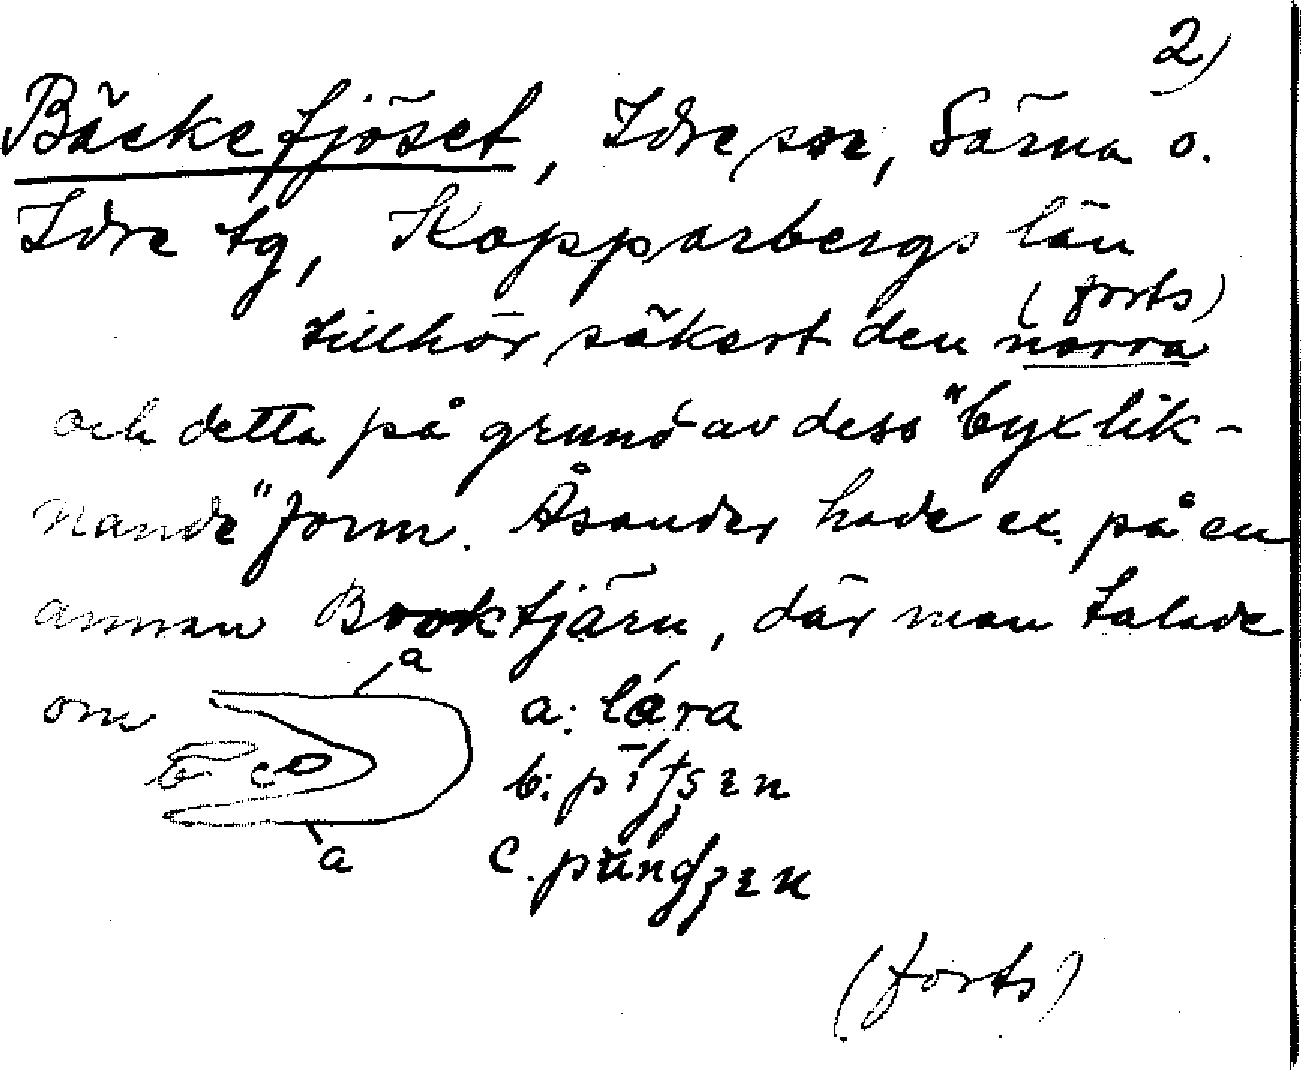 2)
Bäckefjöset, Idre sn, Särna o.
Idre tg, Kopparbergs län
(forts)
tillhör säkert den norra
och detta på grund av dess "byxlik-
nande" form. Åsander hade ex. på en
annan Brooktjärn, där man talade
om
a
a: lára
b c
b:
a
c.
(forts)